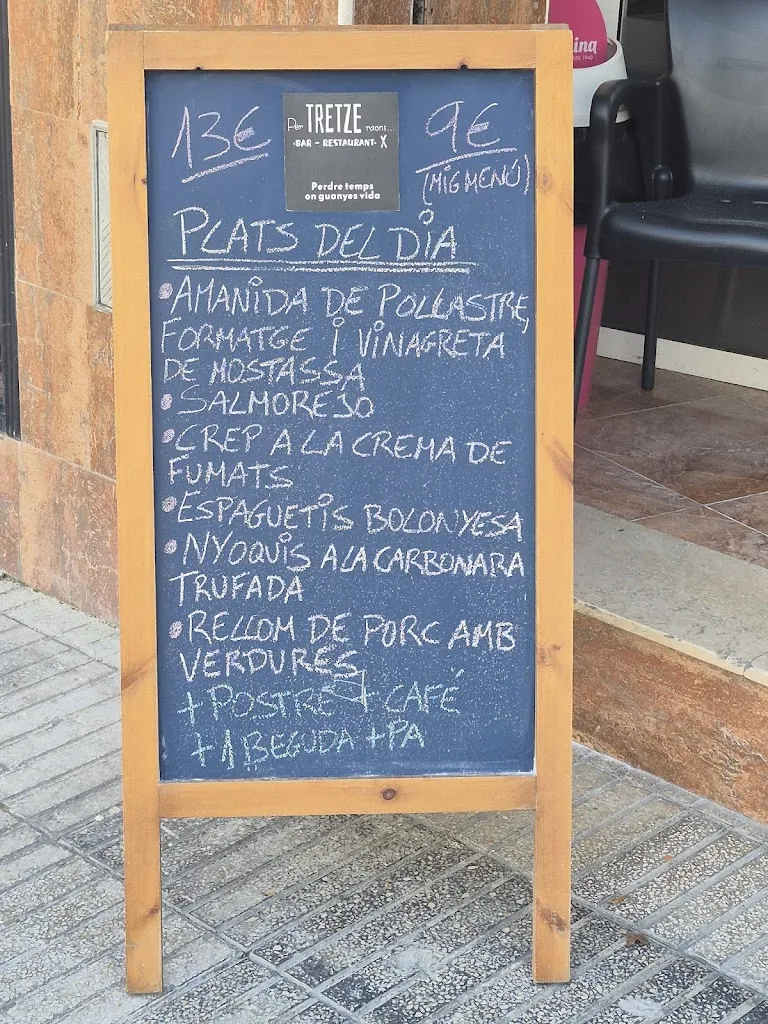 13€
Per TRETZE raons...
·BAR - RESTAURANT· X
Perdre temps
on guanyes vida
9€
(MIG MENÚ)
PLATS DEL DIA
•AMANIDA DE POLLASTRE,
FORMATGE I VINAGRETA
DE MOSTASSA
•SALMOREJO
•CREP A LA CREMA DE
FUMATS
•ESPAGUETIS BOLONYESA
•NYOQUIS A LA CARBONARA
TRUFADA
•RELLOM DE PORC AMB
VERDURES
+POSTRE + CAFÉ
+1 BEGUDA +PA